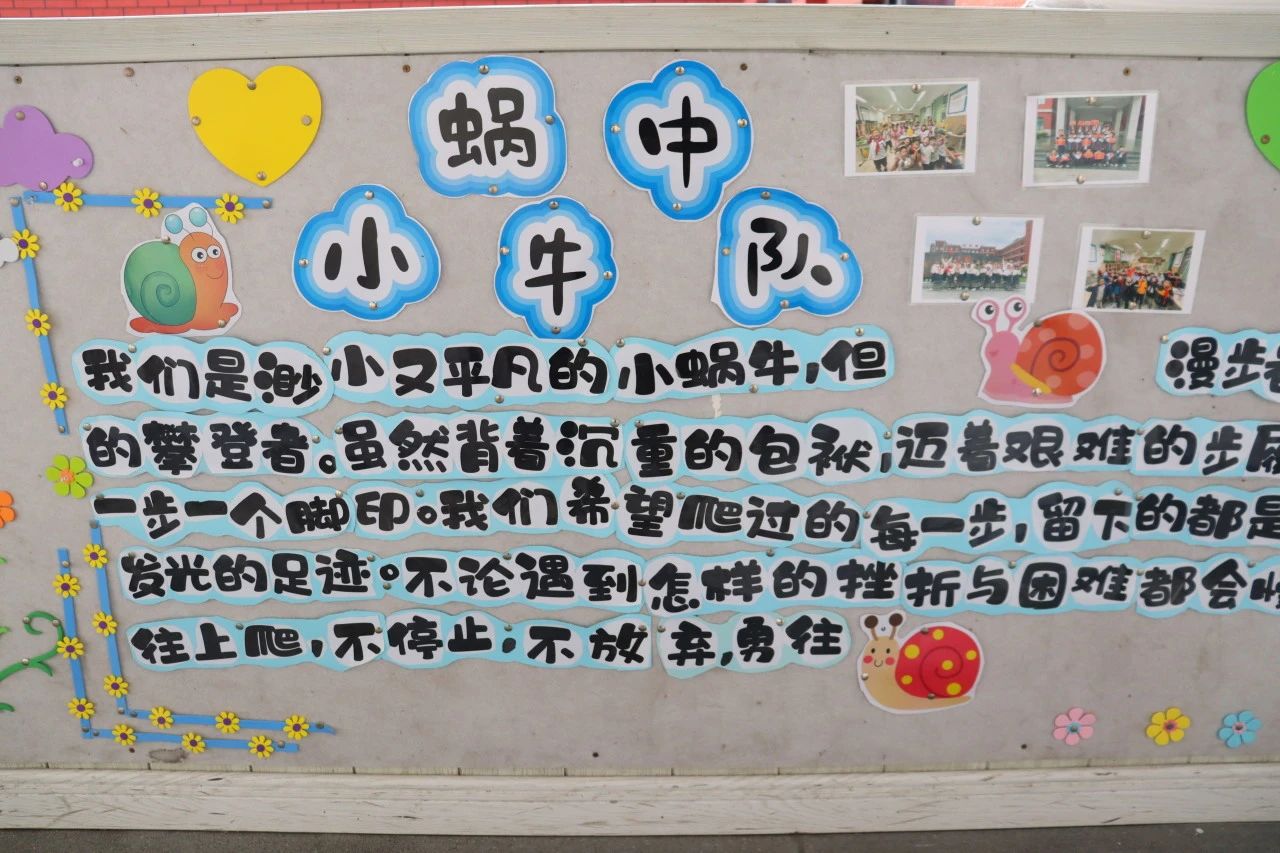 小蜗牛中队
我们是渺小又平凡的小蜗牛,但
漫步
的攀登者。虽然背着沉重的包袱,迈着艰难的步
一步一个脚印。我们希望爬过的每一步,留下的都是
发光的足迹。不论遇到怎样的挫折与困难都会
往上爬,不停止,不放弃,勇往